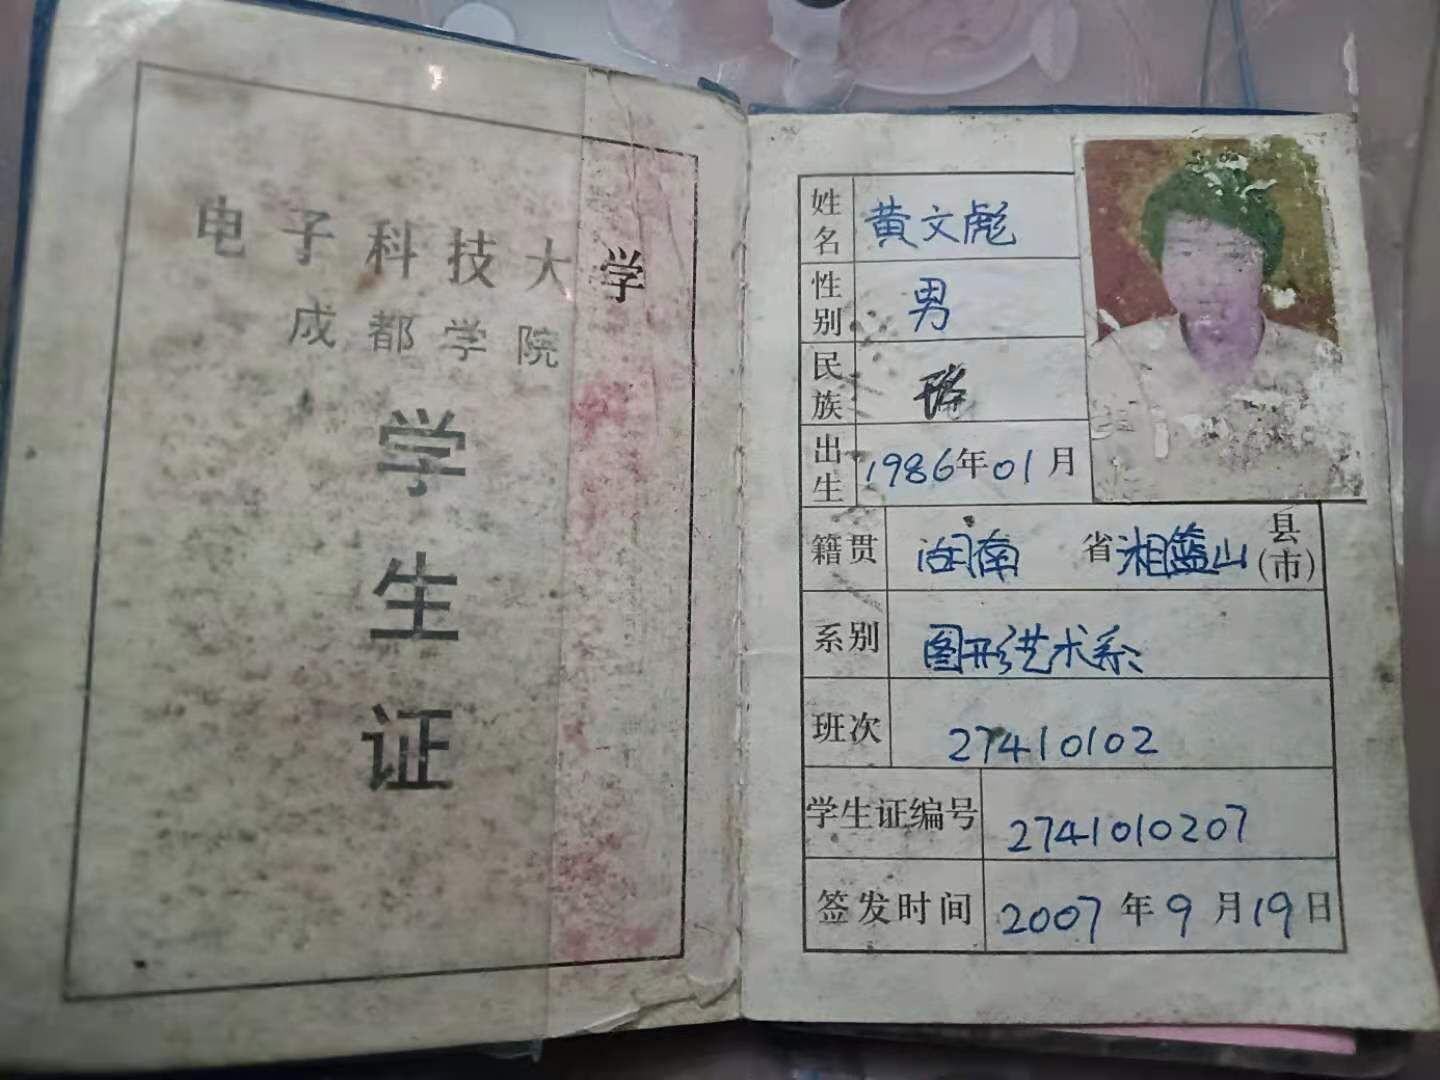 电子科技大学
成都学院
学
生
证
姓名 黄文彪
性别 男
民族
出生 1986年01月
籍贯 湖南 省 湘蓝山 县(市)
系别 图形艺术系
班次 27410102
学生证编号 2741010207
签发时间 2007年9月19日